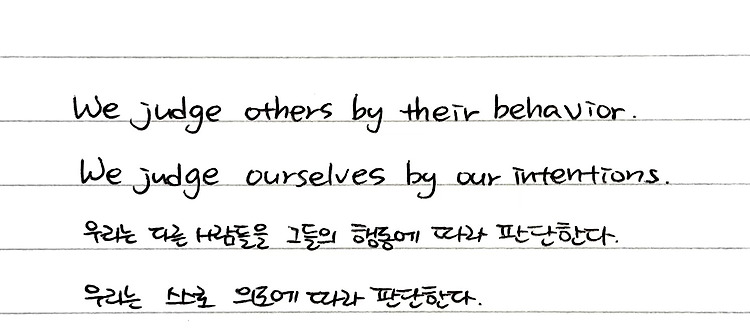 We judge others by their behavior.
We judge ourselves by our intentions.
우리는 다른 사람들을 그들의 행동에 따라 판단한다.
우리는 의도에 따라 판단한다.